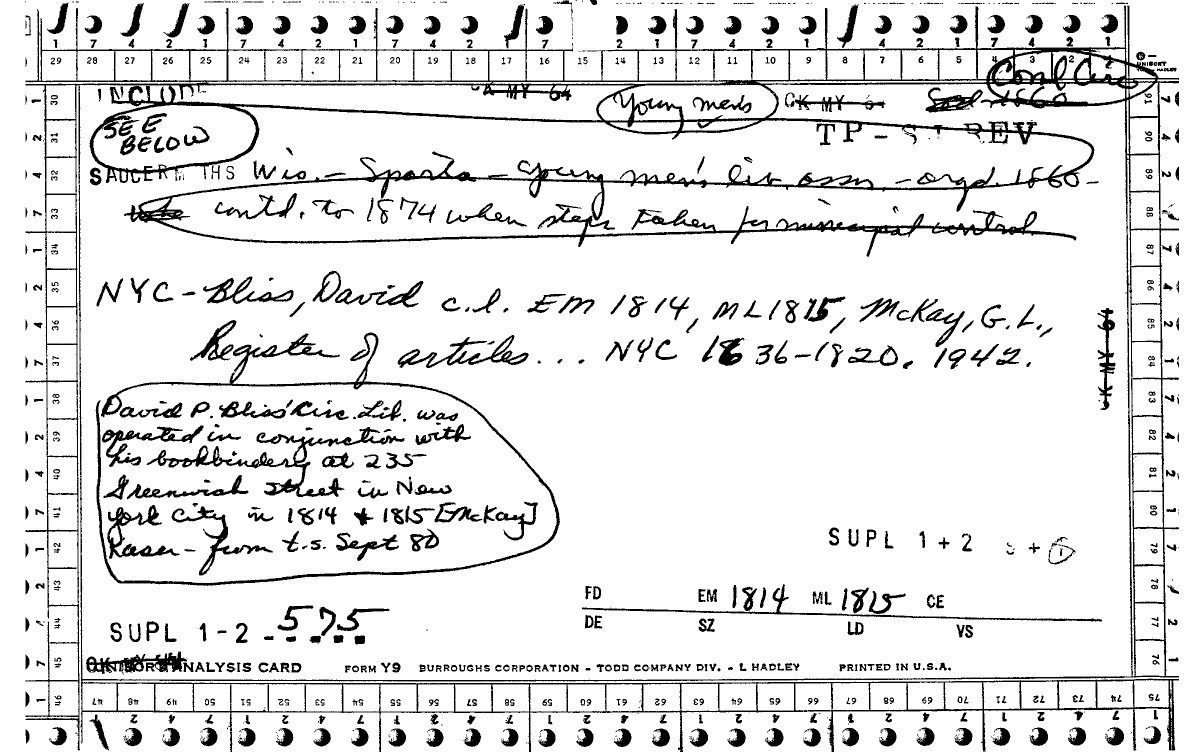 1 7 4 2 1 7 4 2 1 7 4 2 1 7 2 1 7 4 2 1 7 4 2 1 7 4 2 1
29 28 27 26 25 24 23 22 21 20 19 18 17 16 15 14 13 12 11 10 9 8 7 6 5 4 3 2
Comml Circ
UNISORT
HADLEY
INCLUDE
OK MY 64
Young men's
OK MY 64
1860
SEE
BELOW
TP - REV
SAUCERM THS Wis. - Sparta - Young men's lib. assn. - orgd. 1860 -
contd. to 1874 when steps taken for municipal control
NYC - Bliss, David c.l. EM 1814, ML 1815, McKay, G.L.,
Register of articles... NYC 1636-1820. 1942.
OK MY 64
David P. Bliss' Circ. Lib. was
operated in conjunction with
his bookbindery at 235
Greenwich street in New
York City in 1814 & 1815 [McKay]
Kaser - from t.s. Sept 80
SUPL 1+2
FD EM 1814 ML 1815 CE
DE SZ LD VS
SUPL 1-2 - 575
OK MY 64
UNISORT ANALYSIS CARD FORM Y9 BURROUGHS CORPORATION - TODD COMPANY DIV. - L HADLEY PRINTED IN U.S.A.
30 31 32 33 34 35 36 37 38 39 40 41 42 43 44 45 46
91 90 89 88 87 86 85 84 83 82 81 80 79 78 77 76 75
47 48 49 50 51 52 53 54 55 56 57 58 59 60 61 62 63 64 65 66 67 68 69 70 71 72 73 74